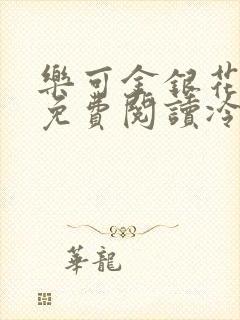 樂可金銀花
免費閱讀冷
華龍